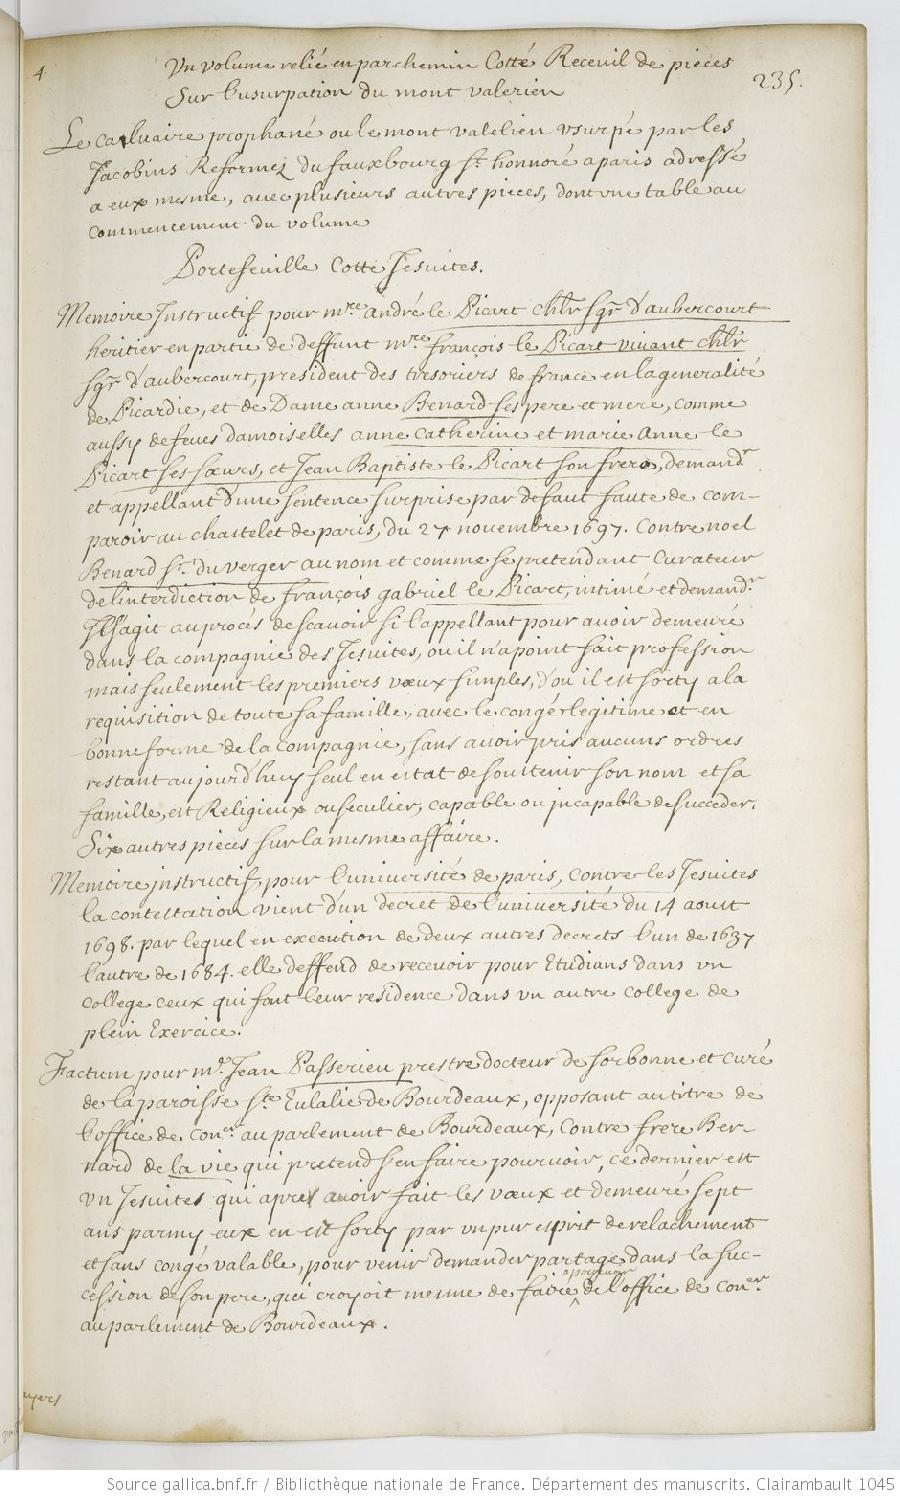 4
Un volume relié en parchemin Cotté Receuil de pieces
235.
Sur l'usurpation du mont valerien
Le calvaire prophané ou le mont valerien usurpé par les
Jacobins Reformez du fauxbourg St. honnoré a paris adressé
a eux mesme, avec plusieurs autres pieces, dont une table au
commencement du volume
Portefeuille Cotté Jesuites.
Memoire Instructif pour mre. andré le Picart chlr sgr d'aubercourt
heritier en partie de deffunt mre françois le Picart vivant chlr
sgr d'aubercourt, president des tresoriers de france en la generalité
de Picardie, et de Dame anne Benard ses pere et mere, comme
aussy defeues damoiselles anne catherine et marie Anne le
Picart ses sœurs, et Jean Baptiste le Picart son frere, demandr
et appellant d'une sentence surprise par defaut faute de com-
paroir au chastelet de paris, du 27 novembre 1697. Contre noel
Benard sr. du verger au nom et comme se pretendant Curateur
de l'interdiction de françois gabriel le Picart, intimé et demandr.
Il s'agit au procés de scavoir si l'appellant pour avoir demeuré
dans la compagnie des Jesuites, ou il n'a point fait profession
mais seulement les premiers vœux simples, d'ou il est sorty a la
requisition de toute sa famille, avec le congé legitime et en
bonne forme de la compagnie, sans avoir pris aucuns ordres
restant aujourd'huy seul en estat de soustenir son nom et sa
famille, est Religieux ou seculier, capable ou incapable de succeder.
Six autres pieces sur la mesme affaire.
Memoire instructif, pour l'université de paris, contre les Jesuites
la contestation vient d'un decret de l'université du 14 aoust
1698. par lequel en execution de deux autres decrets l'un de 1637
l'autre de 1684. elle deffend de recevoir pour Etudians dans un
college ceux qui font leur residence dans un autre college de
plein Exercice.
Factum pour me. Jean Passerieu prestre docteur de sorbonne et curé
de la paroisse Ste Eulalie de Bourdeaux, opposant au titre de
l'office de coner. au parlement de Bourdeaux, Contre frere Ber-
nard de la vie qui pretend s'en faire pourvoir, ce dernier est
un Jesuites qui apres avoir fait les vœux et demeuré sept
ans parmy eux en est sorty par un pur esprit de relachement
et sans congé valable, pour venir demander partage dans la suc-
cession de son pere, qui croyoit mesme de faire pourvoir de l'office de coner.
au parlement de Bourdeaux.
Source gallica.bnf.fr / Bibliothèque nationale de France. Département des manuscrits. Clairambault 1045